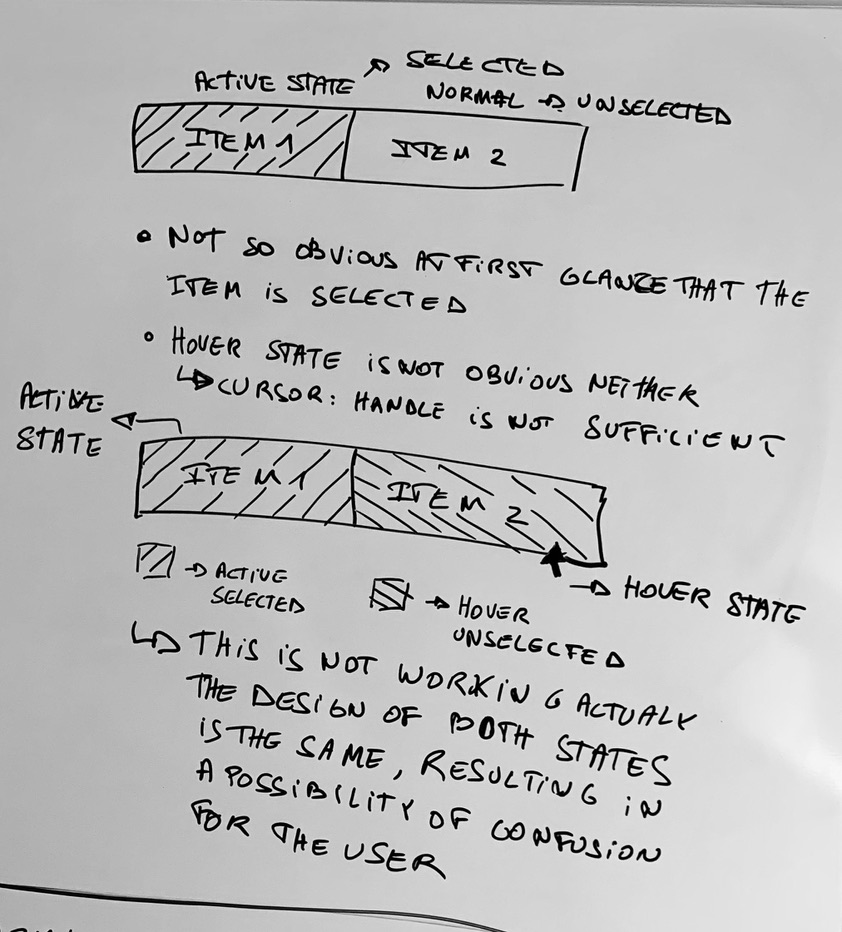 ACTIVE STATE ↗ SELECTED
NORMAL → UNSELECTED
ITEM 1 ITEM 2
• NOT SO OBVIOUS AT FIRST GLANCE THAT THE
ITEM IS SELECTED
• HOVER STATE IS NOT OBVIOUS NEITHER
↳ CURSOR: HANDLE IS NOT SUFFICIENT
ACTIVE
STATE
ITEM 1 ITEM 2
→ HOVER STATE
→ ACTIVE
SELECTED
→ HOVER
UNSELECTED
↳ THIS IS NOT WORKING ACTUALY
THE DESIGN OF BOTH STATES
IS THE SAME, RESULTING IN
A POSSIBILITY OF CONFUSION
FOR THE USER